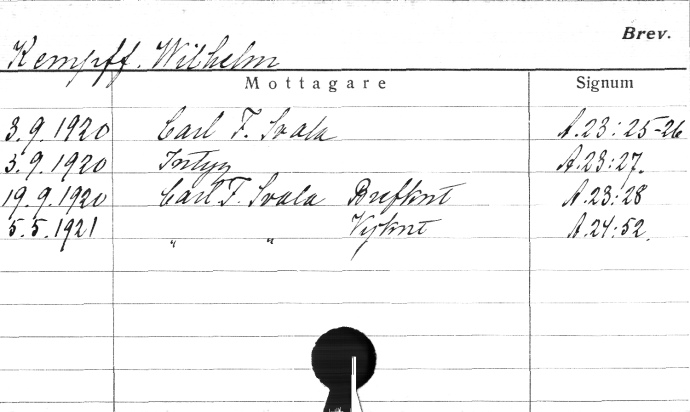 Brev.
Kempff, Wilhelm
Mottagare Signum
3.9.1920 Carl F. Svala A.23:25-26
3.9.1920 Intyg A.23:27.
19.9.1920 Carl F. Svala Brefknt A.23:28
5.5.1921 „ „ Vyknt A.24:52.